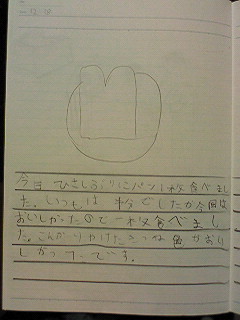 今日 ひさしぶりにパン1枚食べまし
た。いつもは 枚でしたが今回は
おいしかったので一枚食べまし
た。こんがりやけたきつね色がおい
しかったーです。